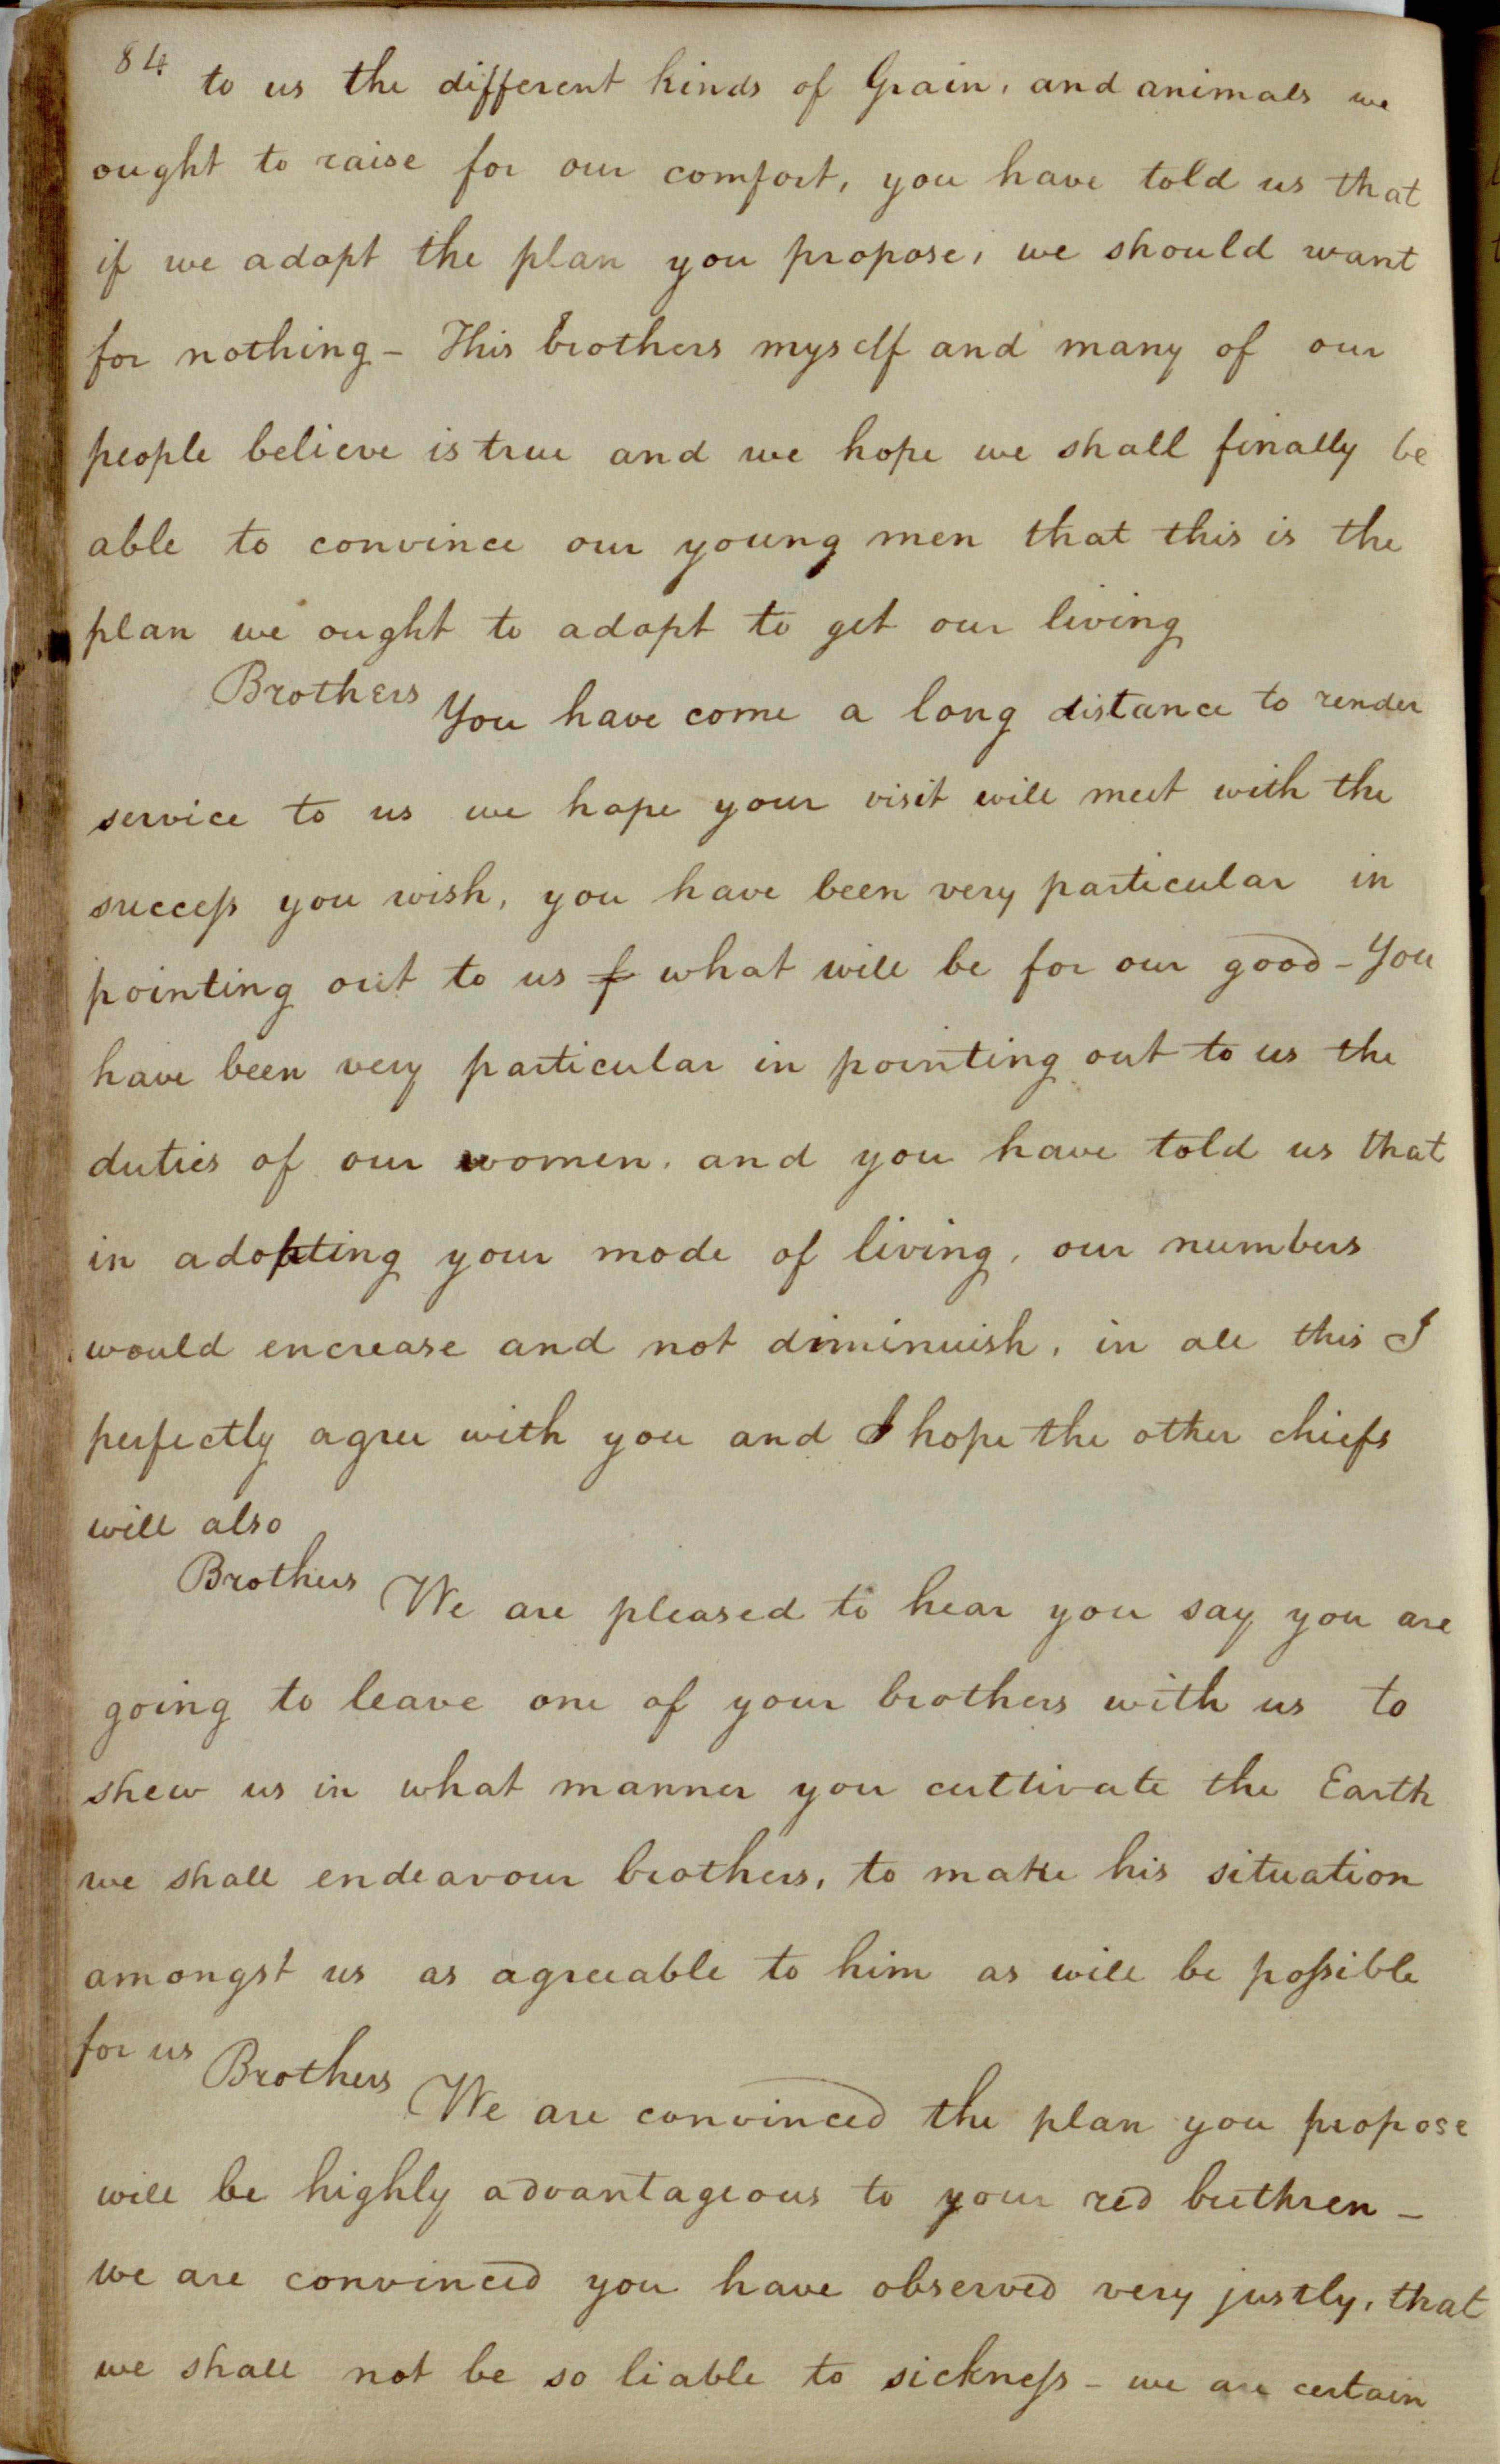 84
to us the different kinds of Grain, and animals we
ought to raise for our comfort, you have told us that
if we adopt the plan you propose, we should want
for nothing - This brothers myself and many of our
people believe is true and we hope we shall finally be
able to convince our young men that this is the
plan we ought to adopt to get our living
Brothers You have come a long distance to render
service to us we hope your visit will meet with the
success you wish, you have been very particular in
pointing out to us f what will be for our good - You
have been very particular in pointing out to us the
duties of our women, and you have told us that
in adopting your mode of living, our numbers
would encrease and not diminuish, in all this I
perfectly agree with you and I hope the other chiefs
will also
Brothers We are pleased to hear you say you are
going to leave one of your brothers with us to
shew us in what manner you cultivate the Earth
we shall endeavour brothers, to make his situation
amongst us as agreeable to him as will be possible
for us
Brothers We are convinced the plan you propose
will be highly advantageous to your red brethren -
we are convinced you have observed very justly, that
we shall not be so liable to sickness - we are certain